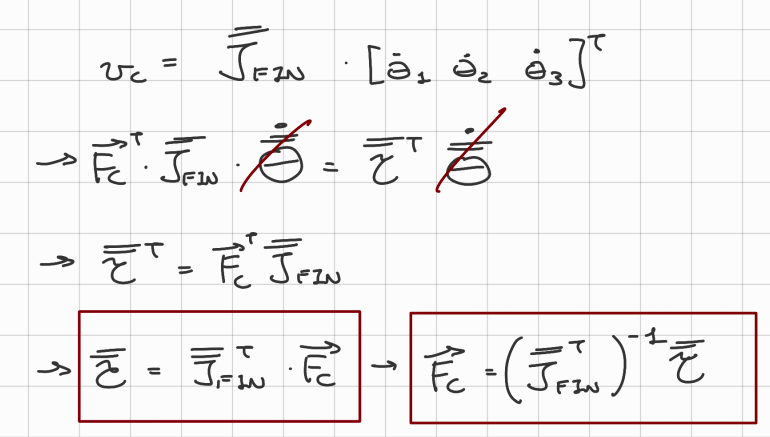 v_c = J̿_FIN · [θ̇₁ θ̇₂ θ̇₃]ᵀ
→ F⃗_cᵀ · J̿_FIN · θ̿̇ = τ̿ᵀ θ̿̇
→ τ̿ᵀ = F⃗_cᵀ J̿_FIN
→ τ̿ = J̿_FINᵀ · F⃗_c → F⃗_c = (J̿_FINᵀ)⁻¹ τ̿